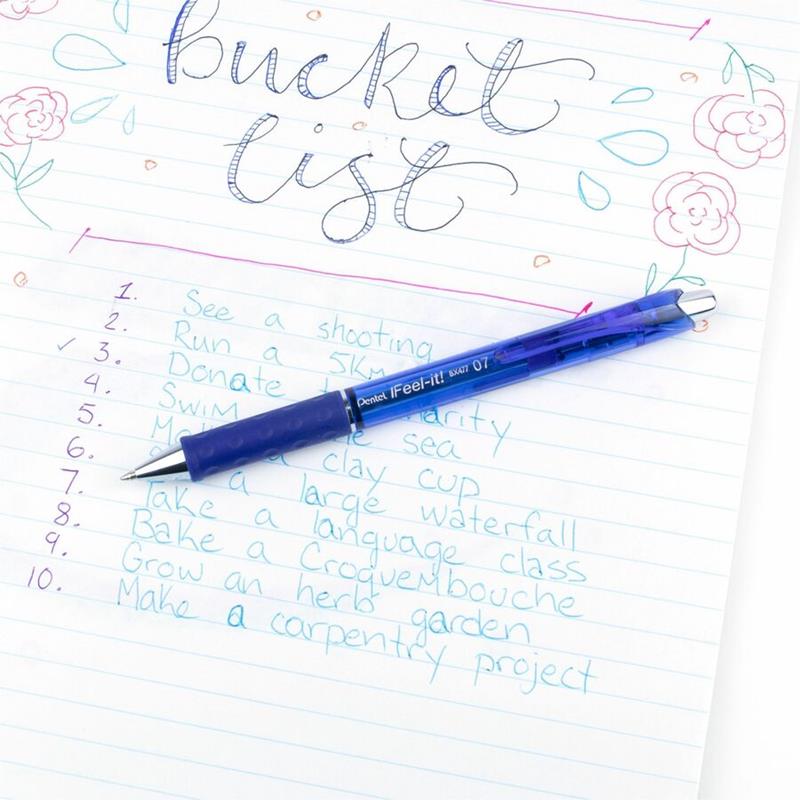 bucket
list
1. See a shooting
2. Run a 5Km
✓ 3. Donate charity
4. Swim sea
5. a clay cup
6. a large waterfall
7. Take a language class
8. Bake a Croquembouche
9. Grow an herb garden
10. Make a carpentry project
Pentel IFeel-it! BX477 07